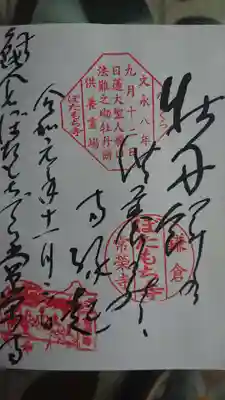 文永八年
九月十二日
日蓮大聖人
法難之砌牡丹餅
供養霊場
ぼたもち寺
牡丹餅
供養
縁起
鎌倉
ぼたもち寺
常栄寺
令和元年十一月
ぼたもちでら常栄寺